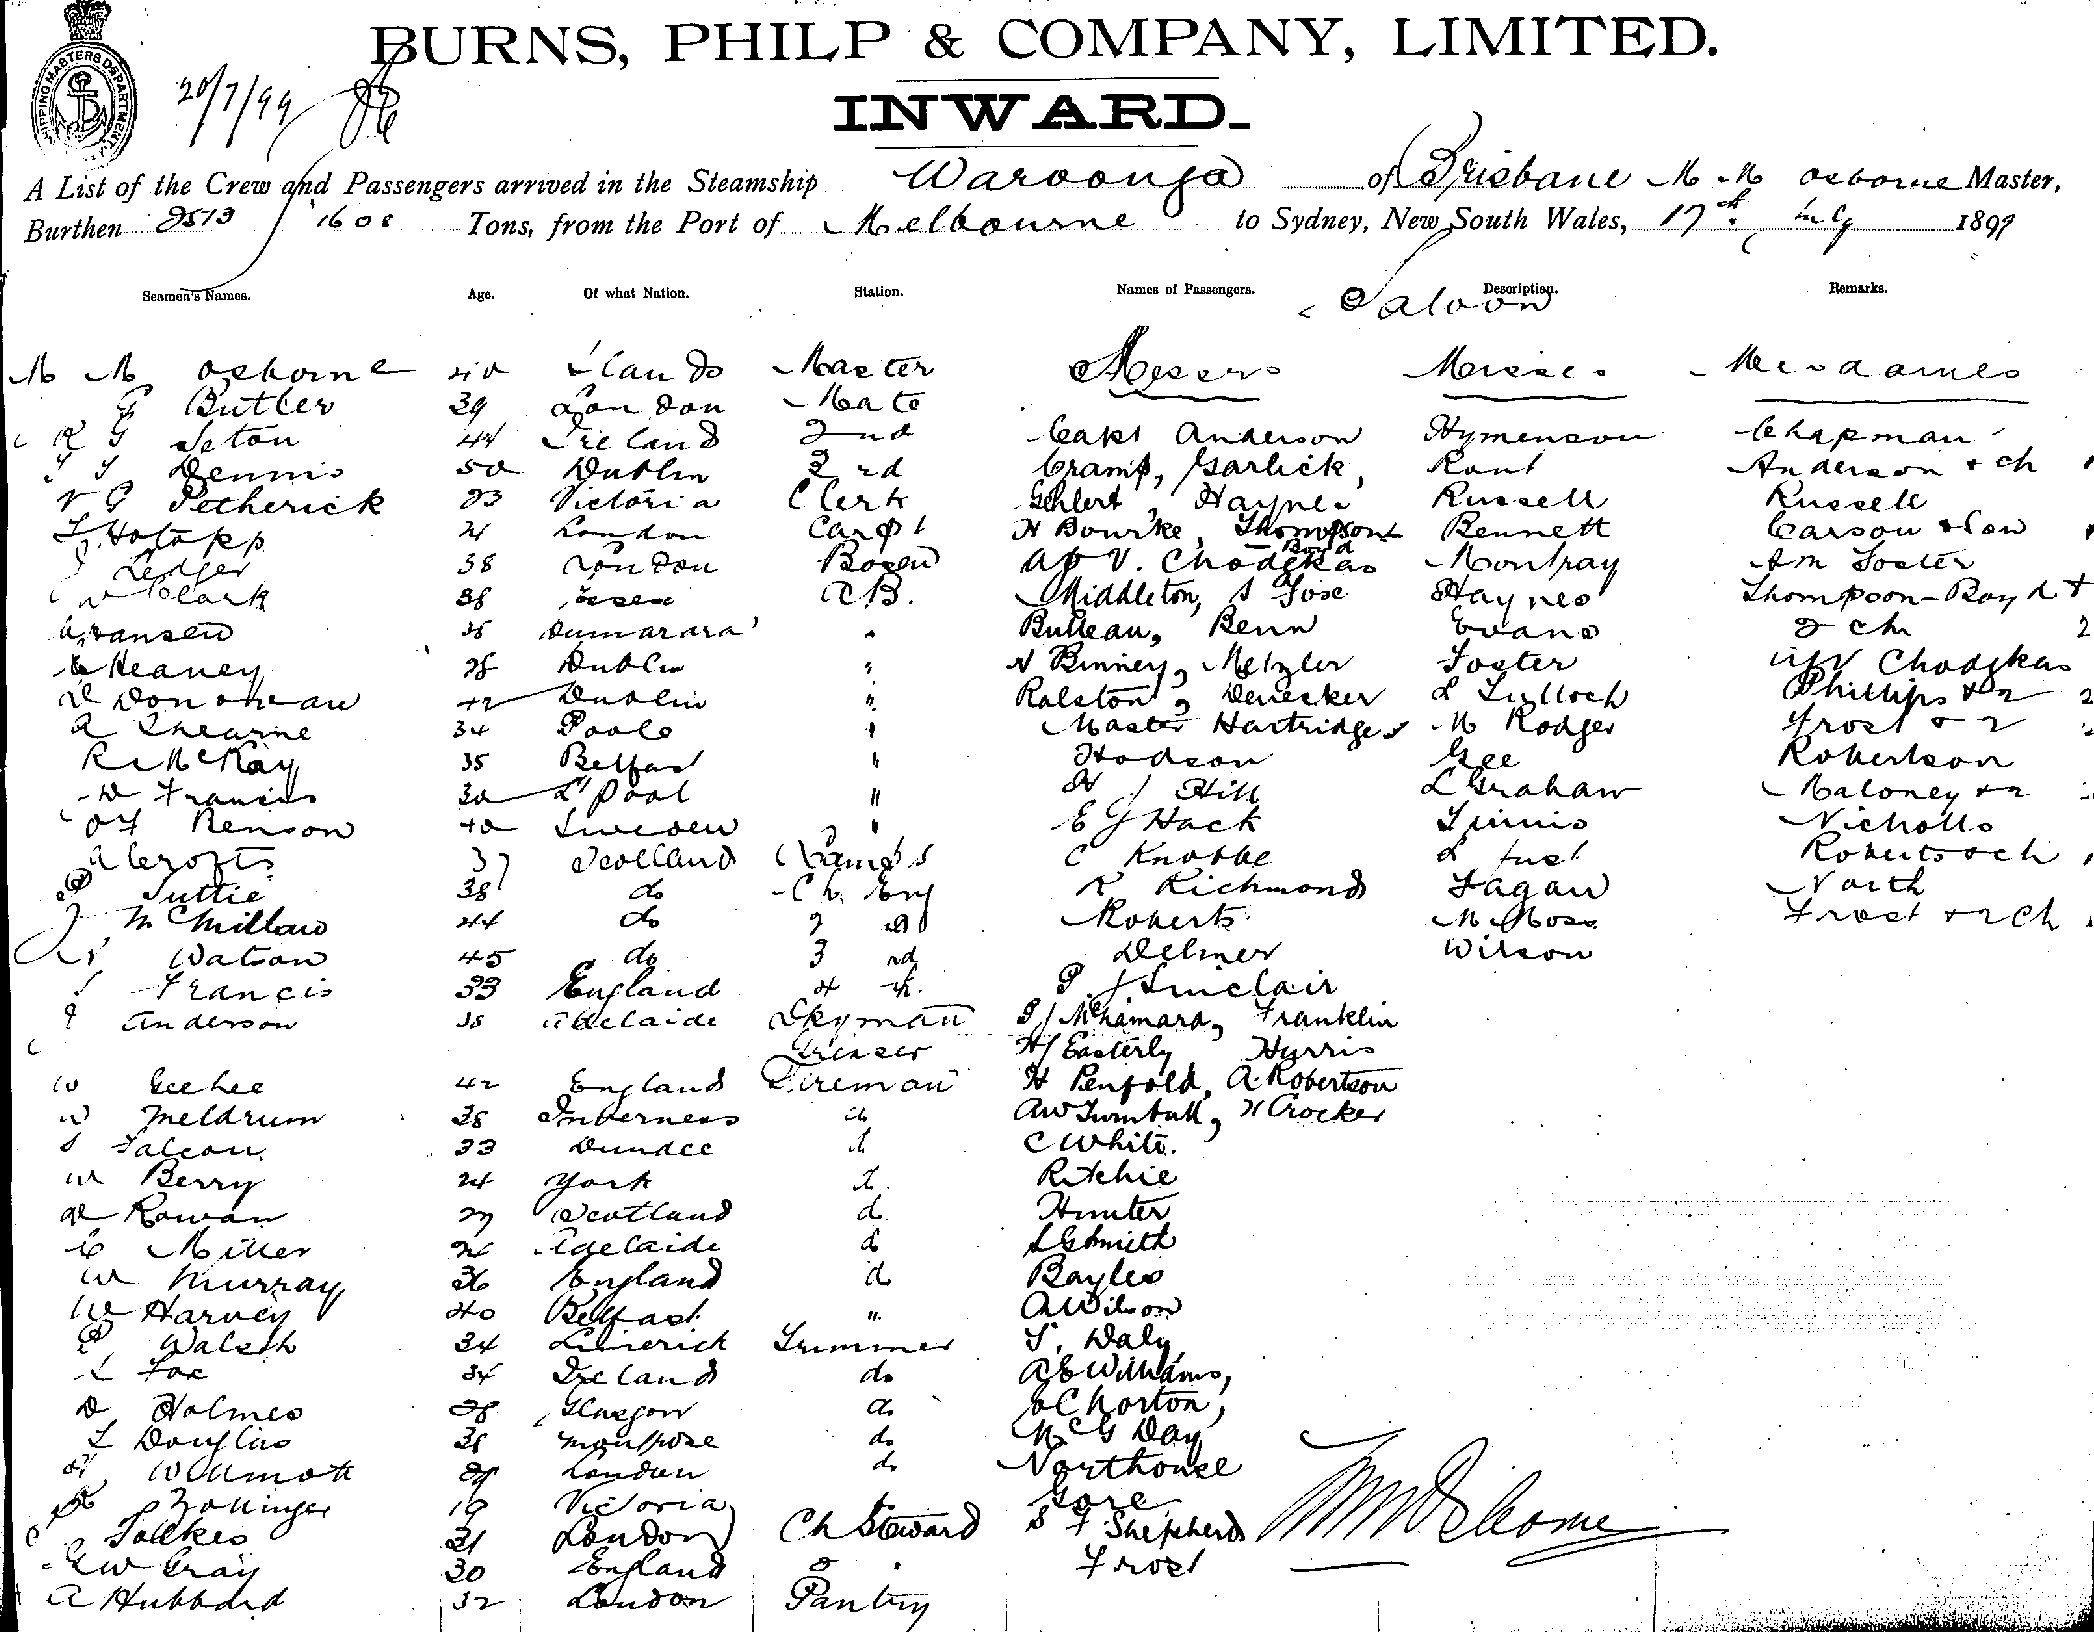 BURNS, PHILP & COMPANY, LIMITED.
SHIPPING MASTERS DEPARTMENT
20/7/99
INWARD.
A List of the Crew and Passengers arrived in the Steamship Waroonga of Brisbane M M Osborne Master,
Burthen 2513 / 1608 Tons, from the Port of Melbourne to Sydney, New South Wales, 17th July 1899
Seamen's Names. Age. Of what Nation. Station. Names of Passengers. Description. Remarks.
Saloon
M M Osborne 40 Master Messrs Misses Mesdames
G Butler 39 London Mate
R G Seton 44 Ireland 2nd Capt Anderson Hymenson Chapman
Dennis 50 Dublin 3rd Cramp, Garlick, Rant Anderson & ch
V G Petherick 23 Victoria Clerk Gehlert, Haynes Russell Russell
Holapp 21 London Carpt H Bourke, Thompson Bennett Carson & Son
Boyd
J Ledger 38 London Bosen V. Chodgkas Montray Foster
W Clark 38 Essex A.B. Middleton, S Fose Haynes Thompson-Boyd &
Hansen 36 Dumarara " Butteau, Benn Evans 2 ch 2
Heaney 28 Dublin " N Binney, Metzler Foster Chodgkas
D Donovan 42 Dublin " Ralston, Denesker L Tulloch Phillips & 2
A Shearne 34 Poole " Master Hartridge M Rodger Frost & 2
R McKay 35 Belfast " Hodson Gee Robertson
W Francis 30 L'Pool " H J Hill L Graham Maloney & 2
Benson 40 Sweden " E J Hack Finnis Nicholls
A Crofts 37 Scotland Lamps C Knobbe L Just Roberts & ch
P Suttie 38 do Ch. Eng R Richmond Fagan North
J McMillan 44 do 2nd Roberts M Moss Frost & 2 Ch
Watson 45 do 3rd Delmer Wilson
Francis 33 England 4th P J Sinclair
J Anderson 38 Adelaide Dkyman P J McNamara, Franklin
Greaser H J Easterly Harris
W Geehee 42 England Fireman H Penfold, A. Robertson
W Meldrum 38 Inverness do AW Turnbull, H Crocker
S Falcon 33 Dundee do C White.
W Berry 24 York do Ritchie
Rowan 27 Scotland do Hunter
C Miller 24 Adelaide do Schmith
W Murray 36 England do Bayles
W Harvey 40 Belfast " A Wilson
P Walsh 34 Limerick Trimmer T. Daly
L Fox 34 Ireland do A E Williams,
D Holmes 28 Glasgow do C Norton,
T Douglas 38 Montrose do Mc G Day
H Willmott 29 London do Northouse
Zollinger 19 Victoria Gore
Solkes 31 London Ch Steward S F Shepherd MM Osborne
E W Gray 30 England 2 " Frost
A Hubbard 32 London Pantry